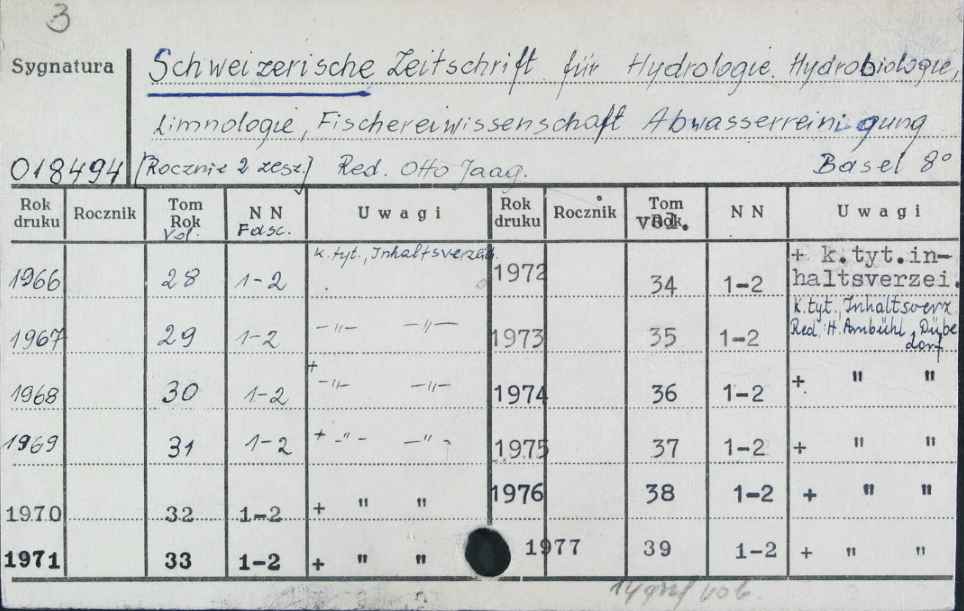 3
Sygnatura Schweizerische Zeitschrift für Hydrologie, Hydrobiologie,
Limnologie, Fischereiwissenschaft Abwasserreinigung
018494 [Rocznie 2 zesz.] Red. Otto Jaag. Basel 8°
Rok druku Rocznik Tom Rok Vol. NN Fasc. Uwagi Rok druku Rocznik Tom vol. NN Uwagi
1966 28 1-2 k. tyt., Inhaltsverzei. 1972 34 1-2 + k.tyt.in-
haltsverzei.
1967 29 1-2 -"- -"- 1973 35 1-2 k.tyt., Inhaltsverz
Red. H. Ambühl, Dübe
dorf
1968 30 1-2 + -"- -"- 1974 36 1-2 + " "
1969 31 1-2 + -"- -"- 1975 37 1-2 + " "
1970 32 1-2 + " " 1976 38 1-2 + " "
1971 33 1-2 + " " 1977 39 1-2 + " "